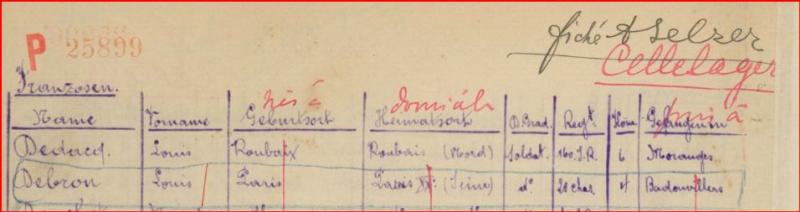 P 25899
fiché A Selzer
Cellelager
Franzosen.
nés à domicile pris à
Name Vorname Geburtsort Heimatsort D.Grad. Regt. Kom Gefangenen
Dedacq. Louis Roubaix Roubais (Nord) Soldat. 160.I.R. 6 Moranges
Debron Louis Paris Paris (Seine) do 20 chas. 4 Badonvillers